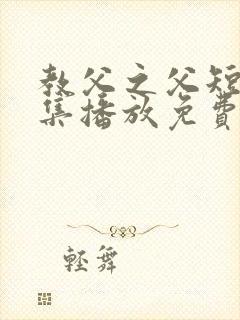 教父之父短
集播放免費
輕舞